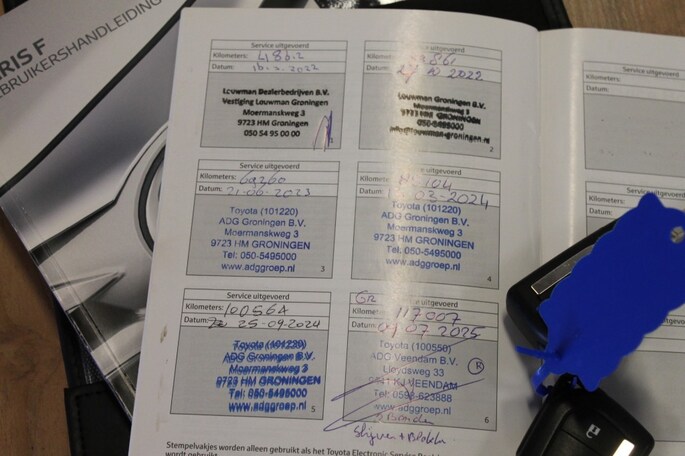 RIS F
EBRUIKERSHANDLEIDING
Service uitgevoerd
Kilometers:
Datum: 16.2.2022
Louwman Dealerbedrijven B.V.
Vestiging Louwman Groningen
Moermanskweg 3
9723 HM Groningen
050 54 95 00 00
1
Service uitgevoerd
Kilometers:
Datum: 10 2022
Louwman Groningen B.V.
Moermanskweg 3
9723 HM GRONINGEN
050-5495000
info@louwman-groningen.nl
2
Service uitgevoerd
Kilometers: 69260
Datum: 21-06-2023
Toyota (101220)
ADG Groningen B.V.
Moermanskweg 3
9723 HM GRONINGEN
Tel: 050-5495000
www.adggroep.nl
3
Service uitgevoerd
Kilometers: 104
Datum: 02-2024
Toyota (101220)
ADG Groningen B.V.
Moermanskweg 3
9723 HM GRONINGEN
Tel: 050-5495000
www.adggroep.nl
4
Service uitgevoerd
Kilometers: 100564
Datum: 25-09-2024
Toyota (101220)
ADG Groningen B.V.
Moermanskweg 3
9723 HM GRONINGEN
Tel: 050-5495000
www.adggroep.nl
5
GR
Service uitgevoerd
Kilometers: 117007
Datum: 07 2025
Toyota (100550)
ADG Veendam B.V.
Lloydsweg 33
VEENDAM
Tel: 0598-623888
www.adggroep.nl
R
6
Kilometers:
Datum:
Service
Kilometers
Datum:
Stempelvakjes worden alleen gebruikt als het Toyota Electronic Service
wordt gebruikt.